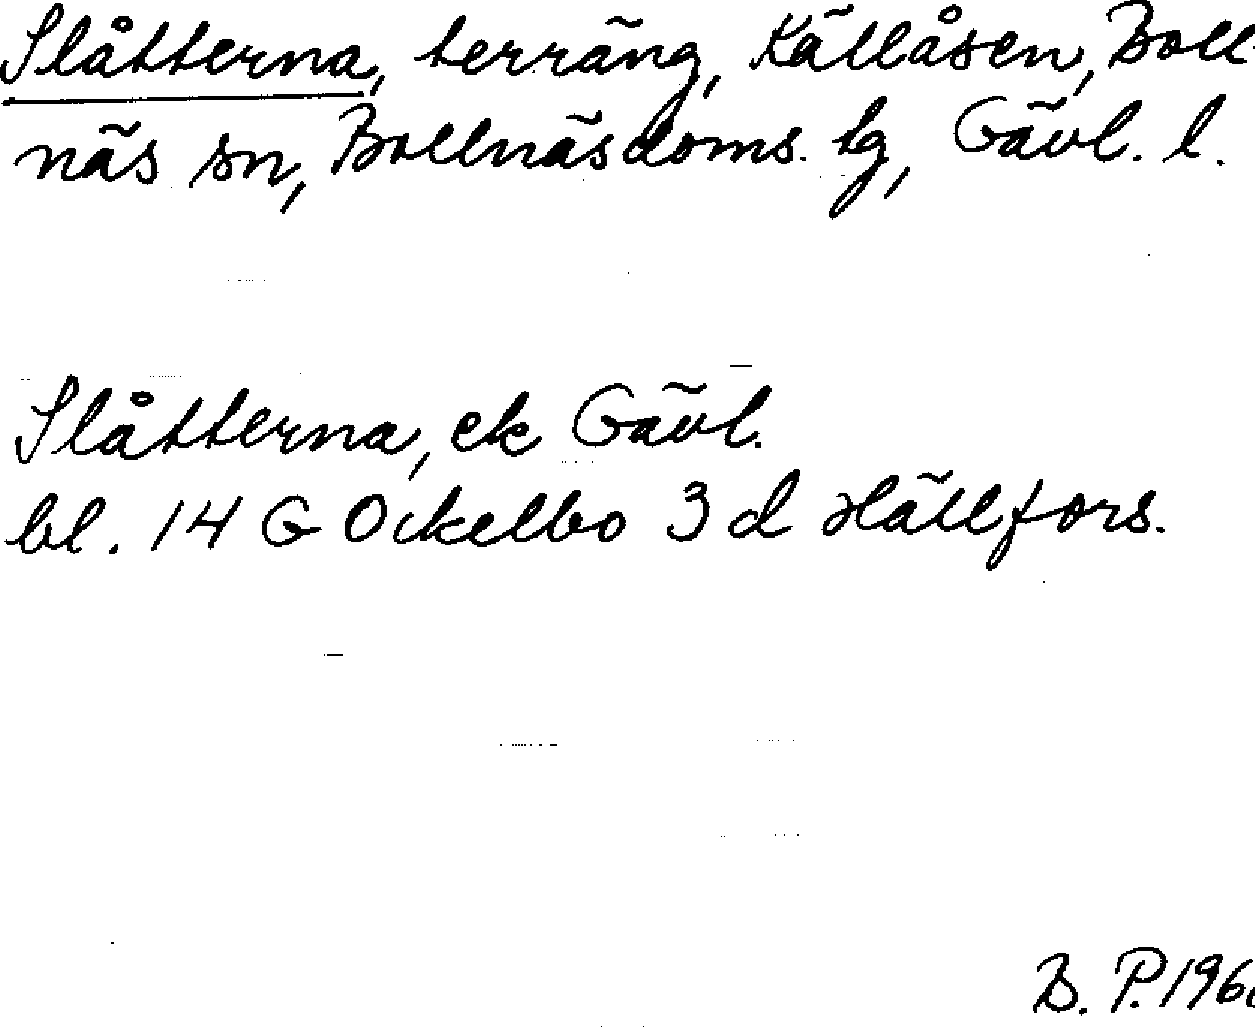 Slåtterna, terräng, Källåsen, Boll
näs sn, Bollnäs doms. tg, Gävl. l.
Slåtterna, ek Gävl.
bl. 14 G Ockelbo 3 d Hällfors.
B. P. 196